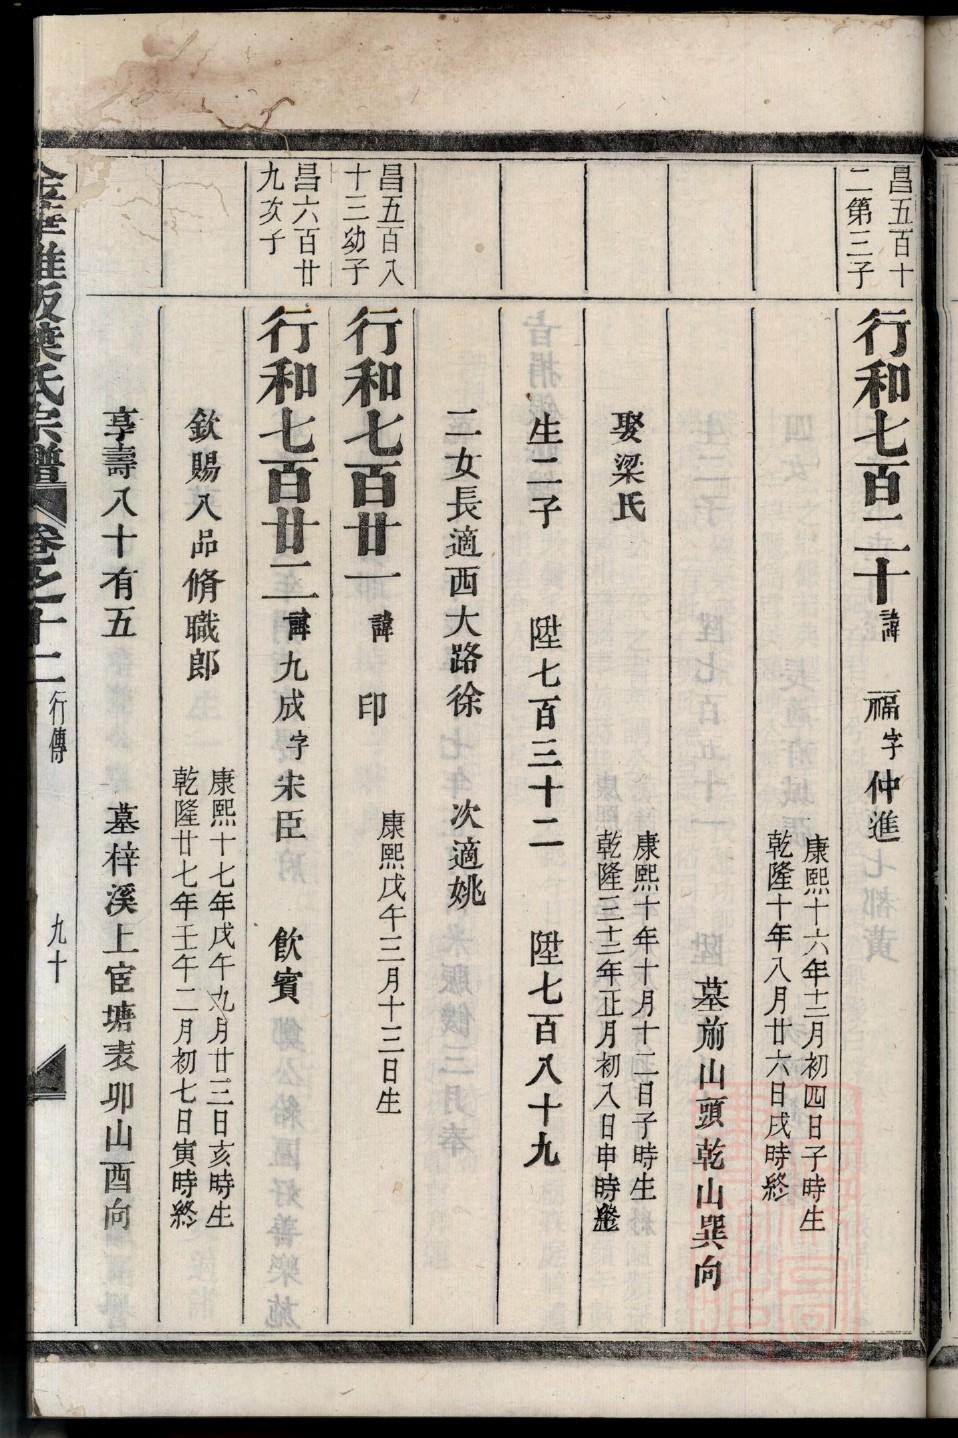 昌五百十
二第三子
行和七百二十諱 福字仲進
康熙十六年十二月初四日子時生
乾隆十年八月廿六日戌時終
墓前山頭乾山巽向
娶梁氏
康熙十年十月十二日子時生
乾隆三十三年正月初八日申時終
生二子 陞七百三十二 陞七百八十九
二女長適西大路徐 次適姚
昌五百八
十三幼子
行和七百廿一諱 印
康熙戊午三月十三日生
昌六百廿
九次子
行和七百廿二諱九成字末臣 飲賓
欽賜八品脩職郎
康熙十七年戊午九月廿三日亥時生
乾隆廿七年壬午二月初七日寅時終
享壽八十有五 墓梓溪上宦塘表卯山酉向
葉氏宗譜 卷之十二 行傳 九十